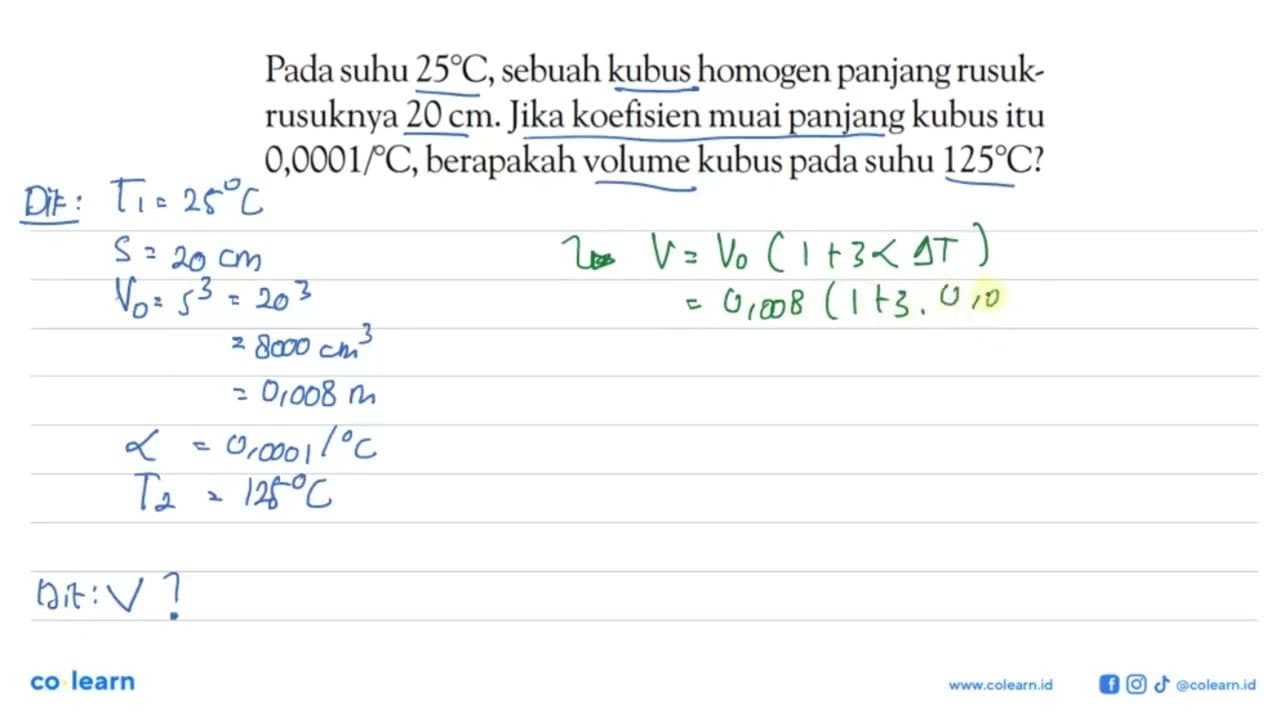 Pada suhu 25°C, sebuah kubus homogen panjang rusuk-
rusuknya 20 cm. Jika koefisien muai panjang kubus itu
0,0001/°C, berapakah volume kubus pada suhu 125°C?
Dit: T1 = 25°C
S = 20 cm
V0 = s³ = 20³
= 8000 cm³
= 0,008 m
α = 0,0001/°C
T2 = 125°C
Dit: V?
V = V0 (1 + 3α ΔT)
= 0,008 (1 + 3 . 0,0
co learn
www.colearn.id
@colearn.id